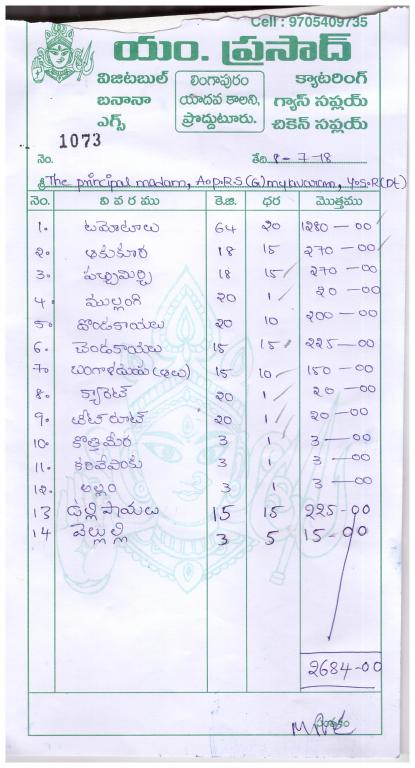 Cell : 9705409735
యం. ప్రసాద్
విజిటబుల్ లింగాపురం క్యాటరింగ్
బనానా యాదవ కాలని, గ్యాస్ సప్లయ్
ఎగ్స్ ప్రొద్దుటూరు. చికెన్ సప్లయ్
1073
నెం. తేది 8-7-18
శ్రీ The principal madam, A.P.R.S (G) mylavaram, Y.S.R (Dt)
నెం. వివరము కె.జి. ధర మొత్తము
1. టమోటాలు 64 20 1280-00
2. ఆకుకూర 18 15 270-00
3. పచ్చిమిర్చి 18 15 270-00
4. ముల్లంగి 20 1 20-00
5. దొండకాయలు 20 10 200-00
6. చెండకాయలు 15 15 225-00
7. బంగాళదుంప (ఆలు) 15 10 150-00
8. క్యారెట్ 20 1 20-00
9. బీట్రూట్ 20 1 20-00
10. కొత్తిమీర 3 1 3-00
11. కరివేపాకు 3 1 3-00
12. అల్లం 3 1 3-00
13 ఉల్లిపాయలు 15 15 225-00
14 వెల్లుల్లి 3 5 15-00
2684-00
సంతకం